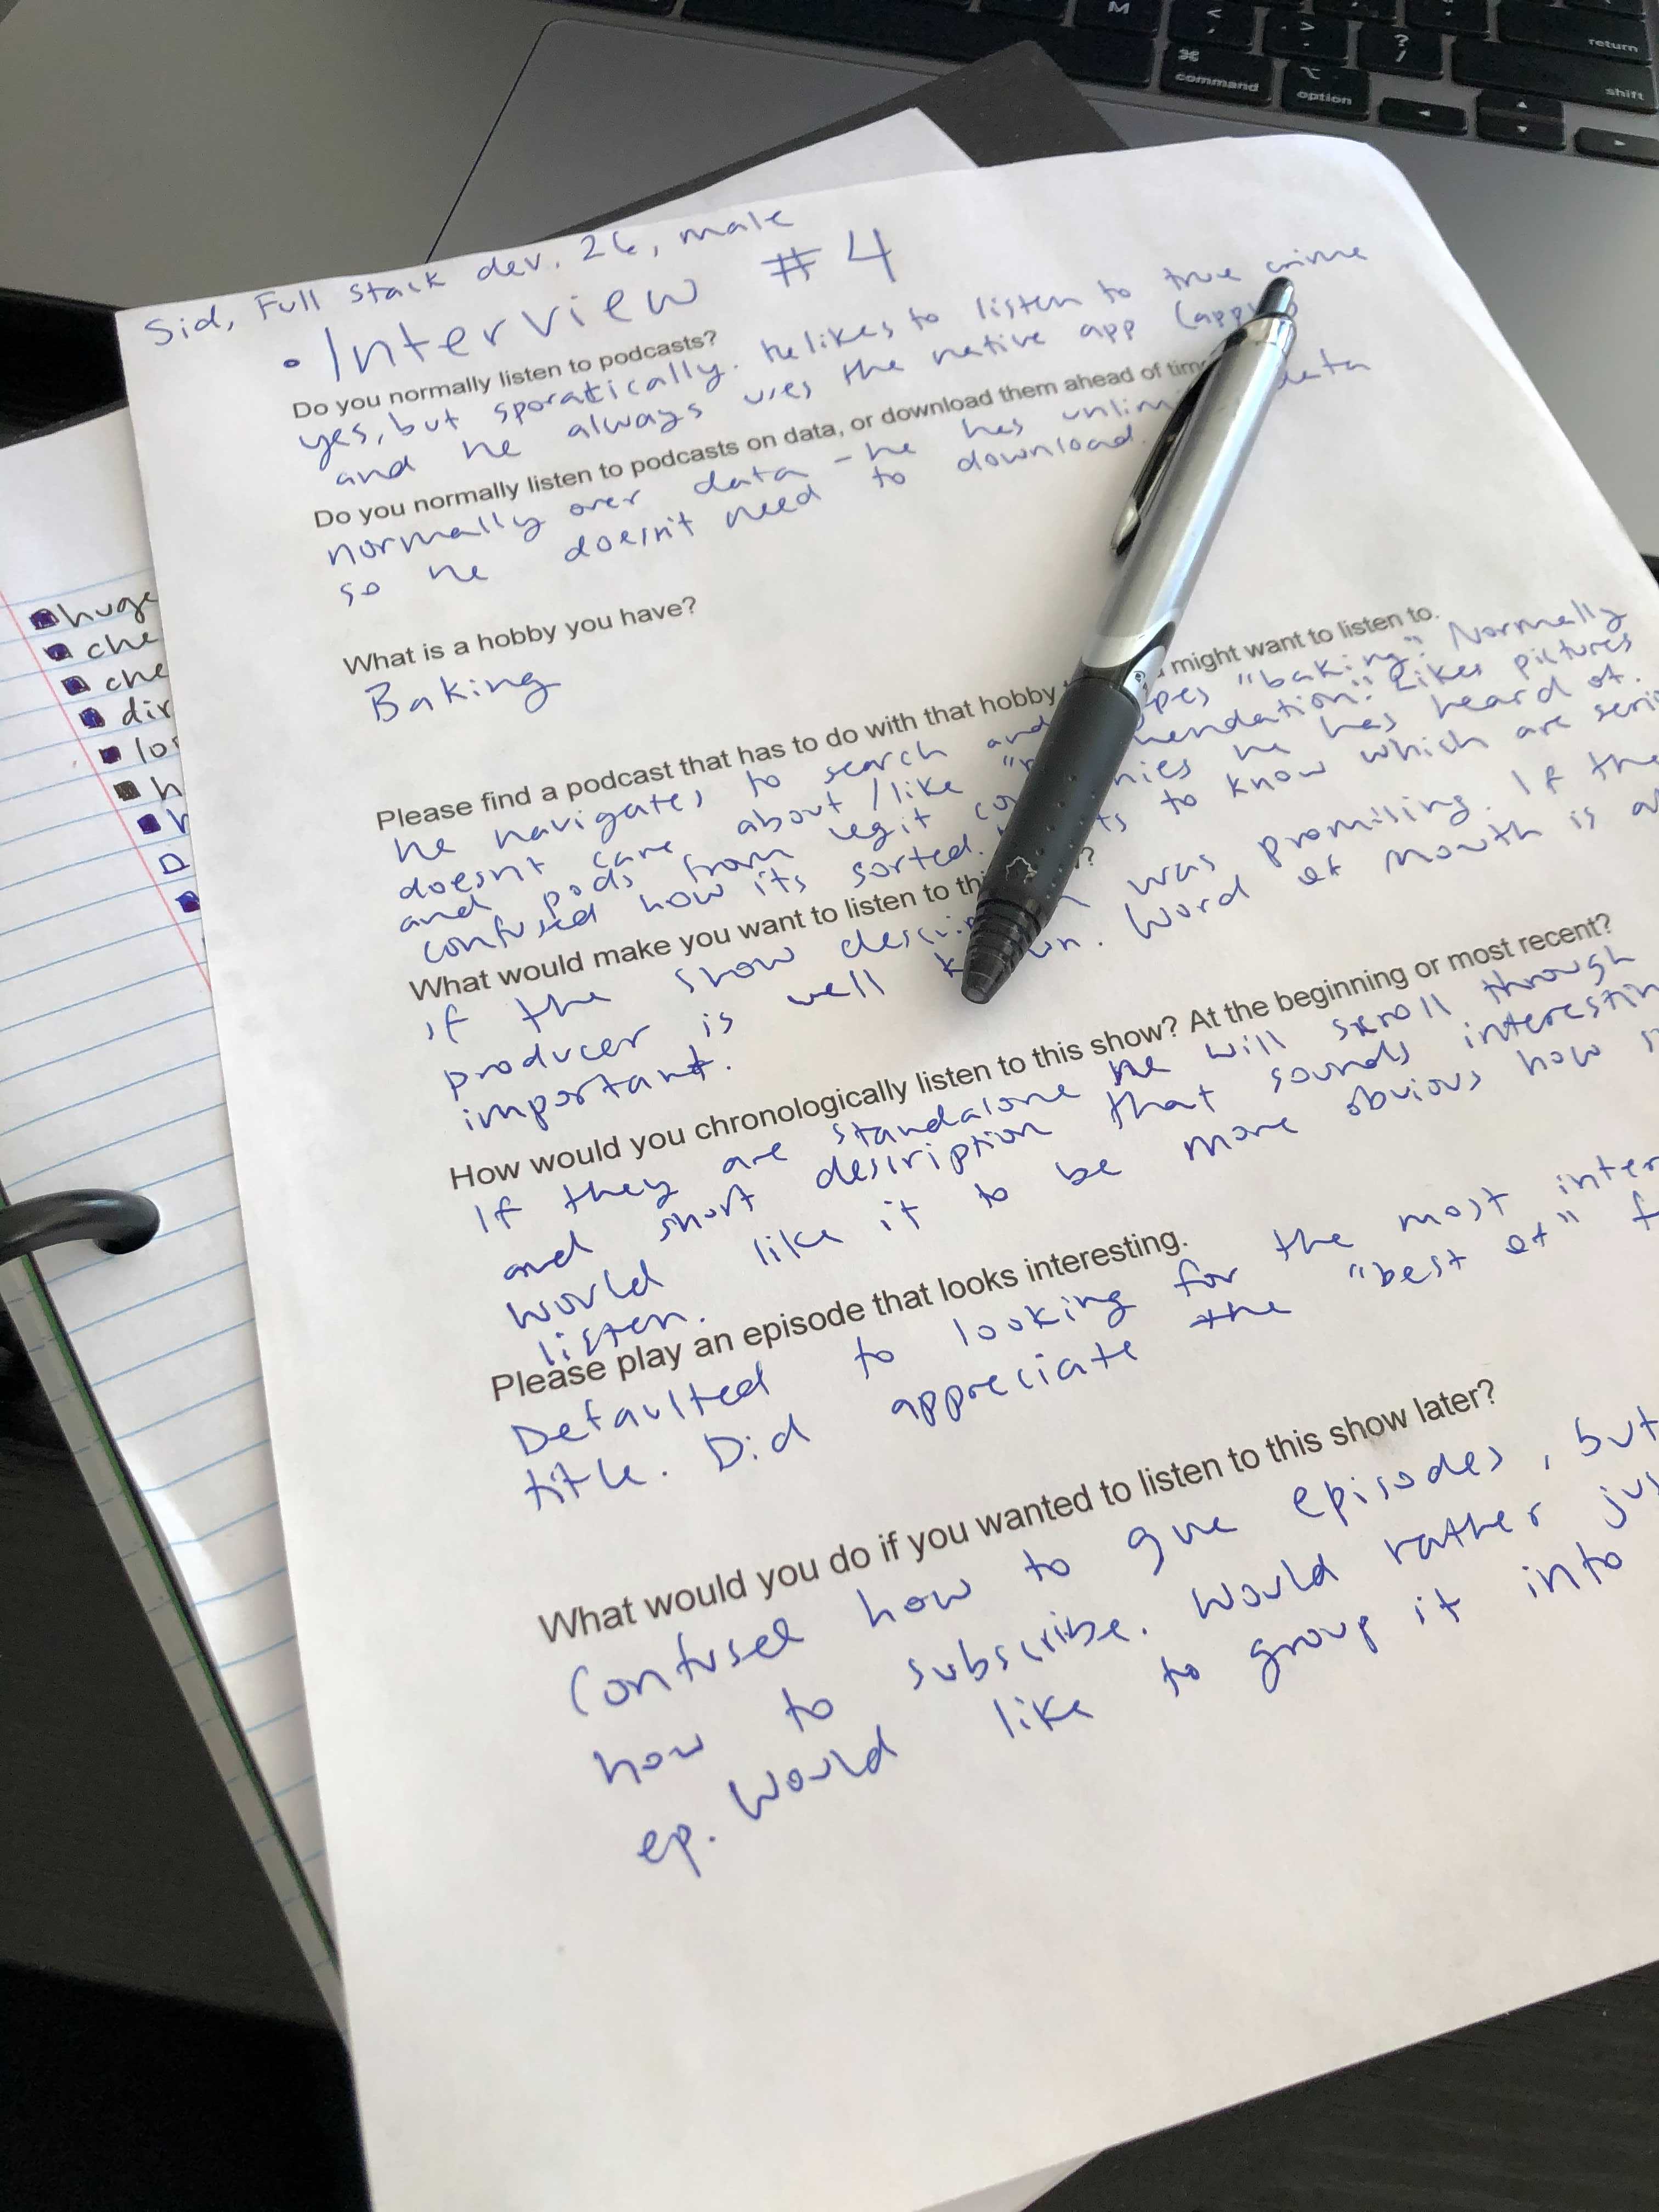 M
<
,
>
.
?
/
return
⌘
command
⌥
option
shift
◄
▲
▼
►
Sid, Full stack dev. 26, male
• Interview #4
Do you normally listen to podcasts?
yes, but sporatically. He likes to listen to true crime
and he always uses the native app
Do you normally listen to podcasts on data, or download them ahead of
normally over data - he has data
so he doesn't need to download.
What is a hobby you have?
Baking
Please find a podcast that has to do with that hobby might want to listen to.
he navigates to search and "baking". Normally
doesn't care about/like Likes pictures
and pods from legit he has heard of.
confused how its sorted. to know which are
What would make you want to listen to ?
if the show was promising. If the
producer is well Word of Mouth is
important.
How would you chronologically listen to this show? At the beginning or most recent?
If they are standalone he will scroll through
and short description that sounds
would like it to be more obvious how
listen.
Please play an episode that looks interesting.
Defaulted to looking for the most
title. Did appreciate the "best of"
What would you do if you wanted to listen to this show later?
Confused how to que episodes, but
how to subscribe. Would rather
ep. Would like to group it into
huge
che
che
dir
h